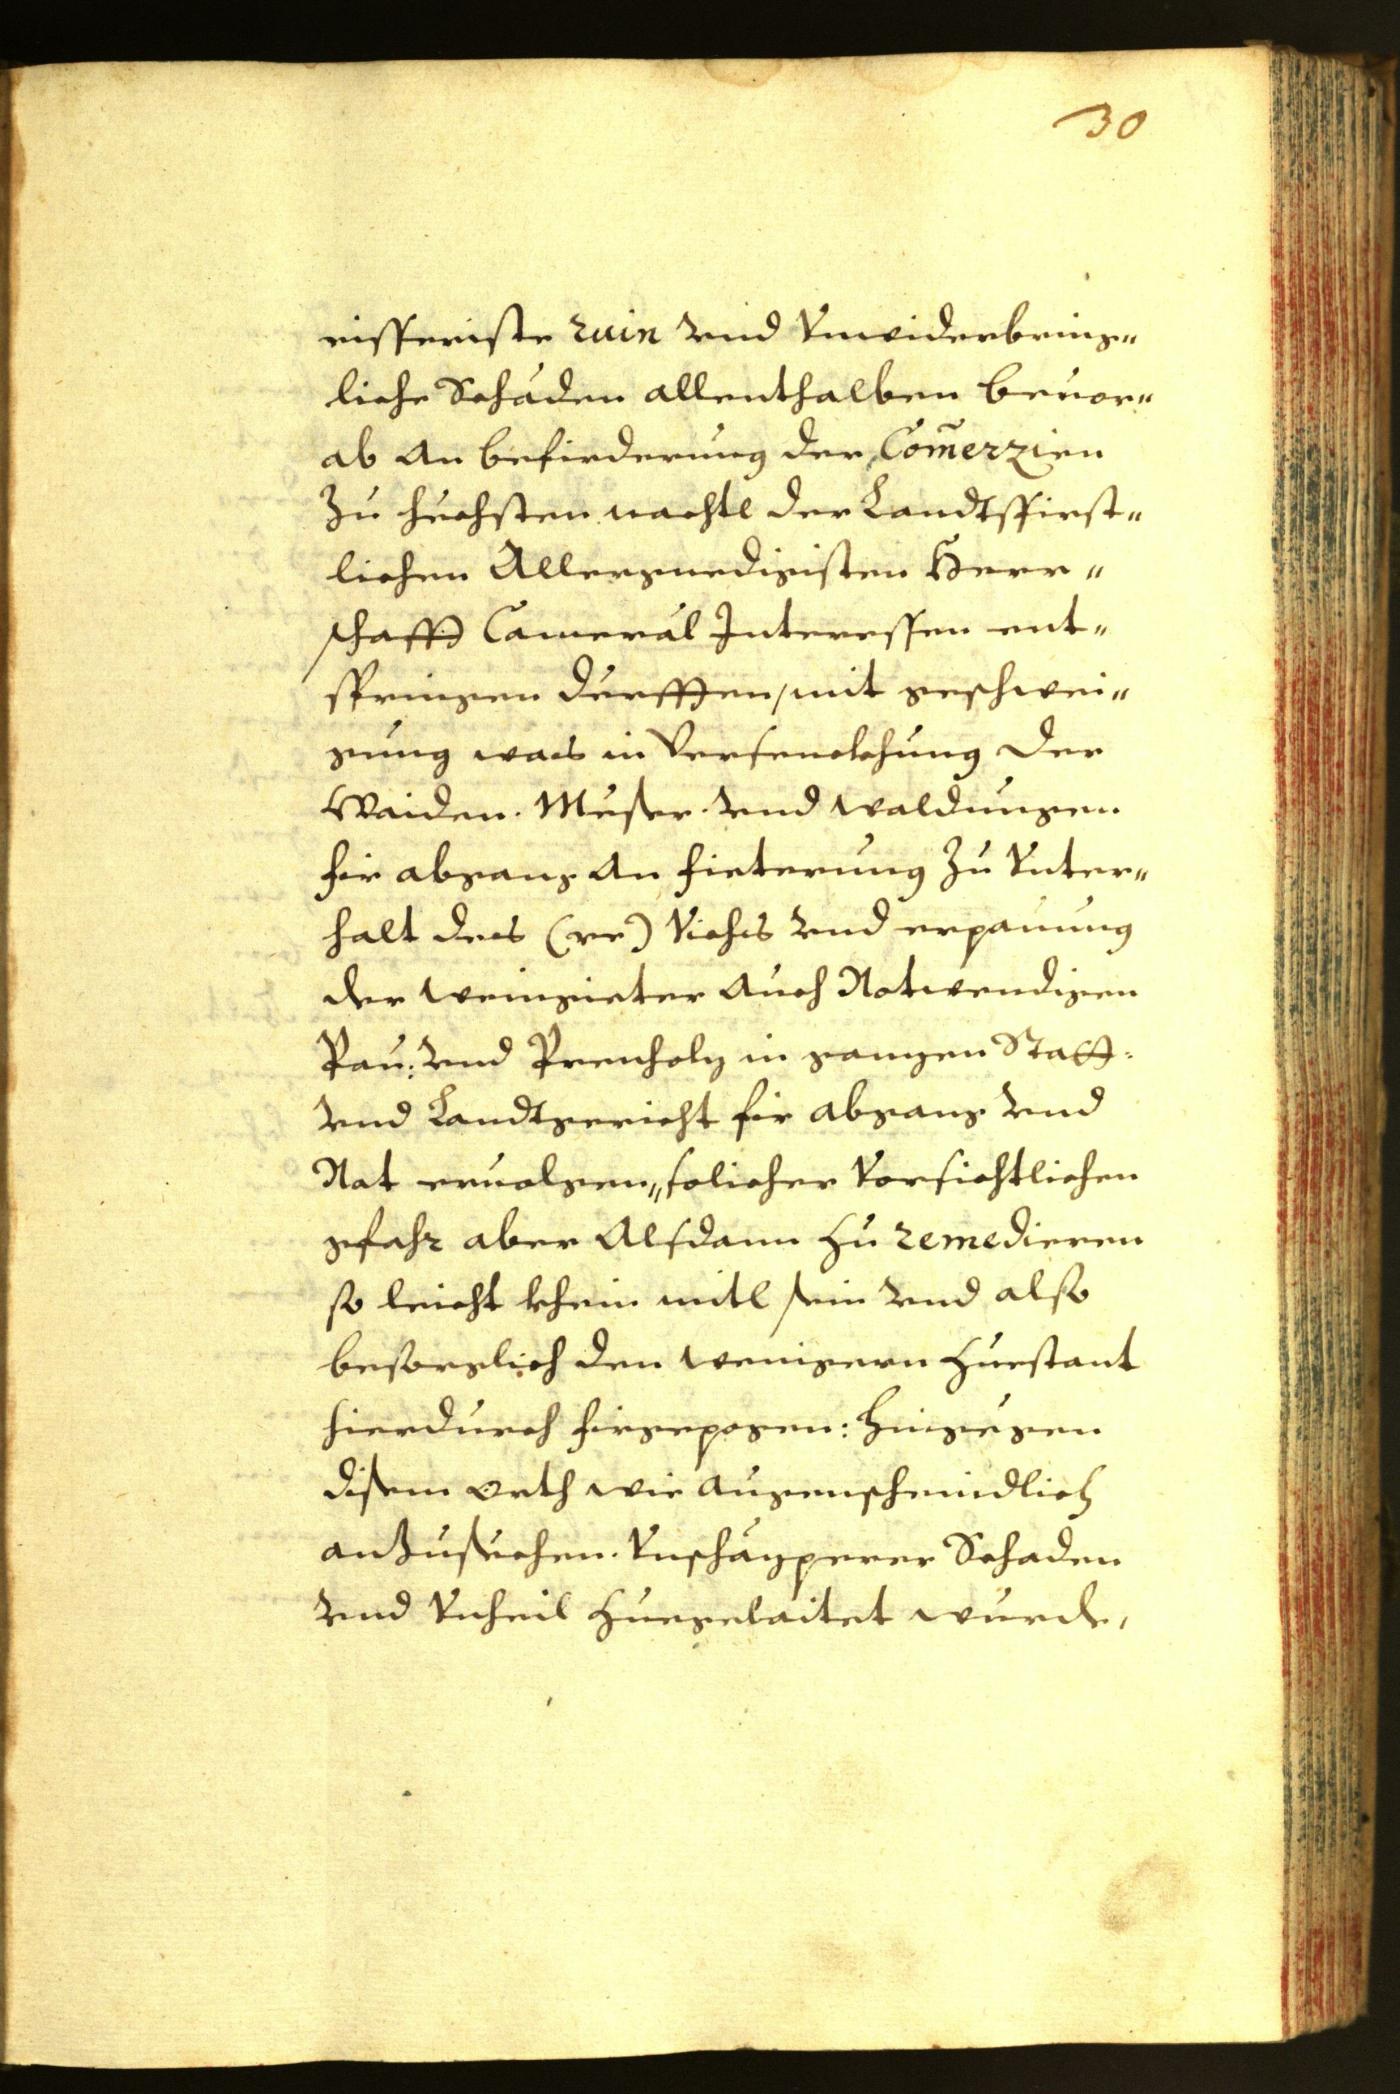 30
eisseriste ruin und Unwiderbring=
liche Schäden allenthalben beuor=
ab an befirderung der Com̃erzien
Zu höchsten nachtl der Landtsfirst=
lichen Allergnedigisten Herr=
schafft Cameral Interessen ent=
springen durfften, mit geschwei=
gung was in Versenckhung der
Waiden. Mußer. und waldungen
fir abgang an fieterung Zu Unter=
halt des (re) Vichs und erpauung
der weingieter auch Notwendigen
Pau: und Prenholz in ganzen Statt:
und Landtgericht fir abgang und
Nat ervolgen, solicher Vorsichtlichen
gfahr aber Alsdann zu remedieren
so leicht khein mitl sein und also
besorglich den wenigern Zuestant
hierdurch firgepogen: Hingegen
disem orth wie augenscheindlich
anzusechen. Unschäzperer Schaden
und Unheil Zuegelaitet wurde,